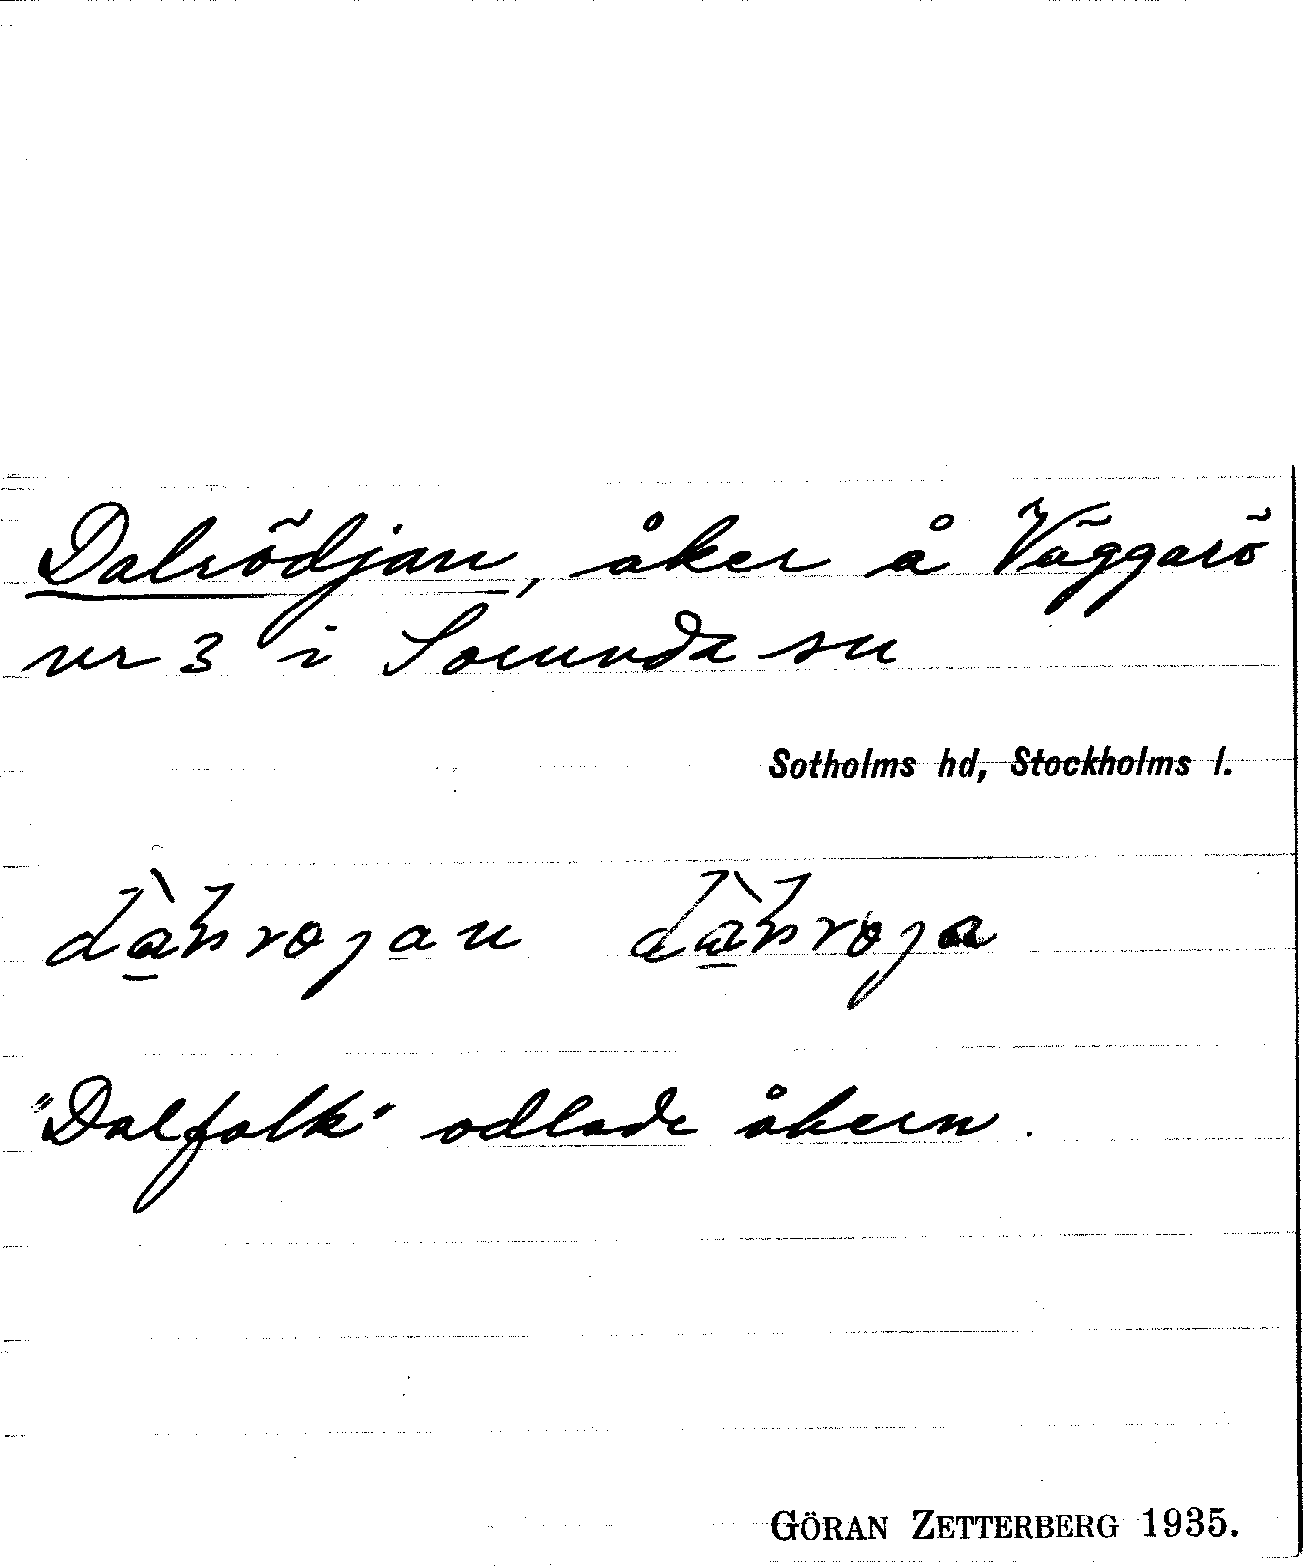 Dalrödjan, åker å Väggarö
nr 3 i Sorunda sn
Sotholms hd, Stockholms l.
"Dalfolk" odlade åkern.
GÖRAN ZETTERBERG 1935.